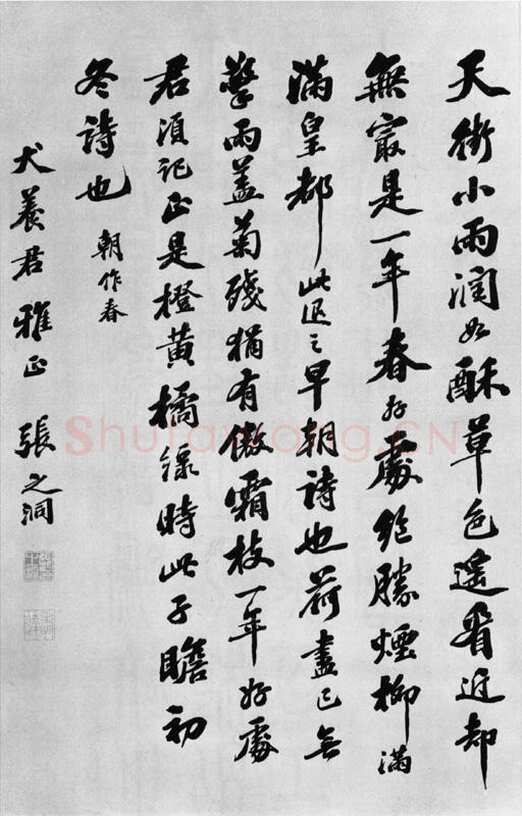 天街小雨潤如酥草色遙看近却
無最是一年春好處絕勝煙柳滿
滿皇都此退之早朝詩也荷盡已無
擎雨蓋菊殘猶有傲霜枝一年好處
君須記正是橙黃橘綠時此子瞻初
冬詩也 朝作春
犬養君雅正 張之洞
ShufaWang.CN